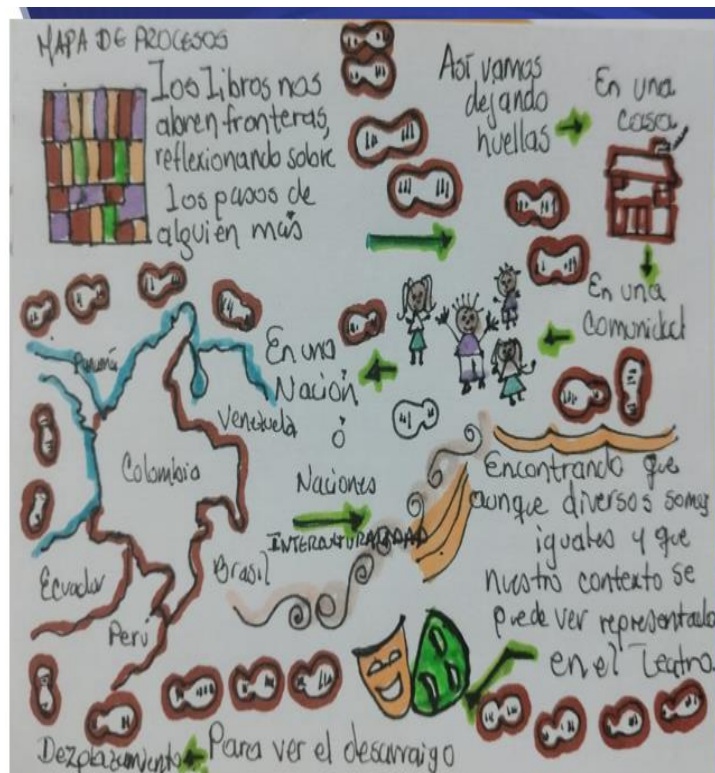 MAPA DE PROCESOS
Los Libros nos
abren fronteras,
reflexionando sobre
los pasos de
alguien más
Así vamos
dejando
huellas
En una
casa
En una
Comunidad
En una
Nación
ó
Naciones
INTERCULTURALIDAD
Panamá
Venezuela
Colombia
Ecuador
Perú
Brasil
Encontrando que
aunque diversos somos
iguales y que
nuestro contexto se
puede ver representado
en el Teatro
Para ver el desarraigo
Dezplazamiento